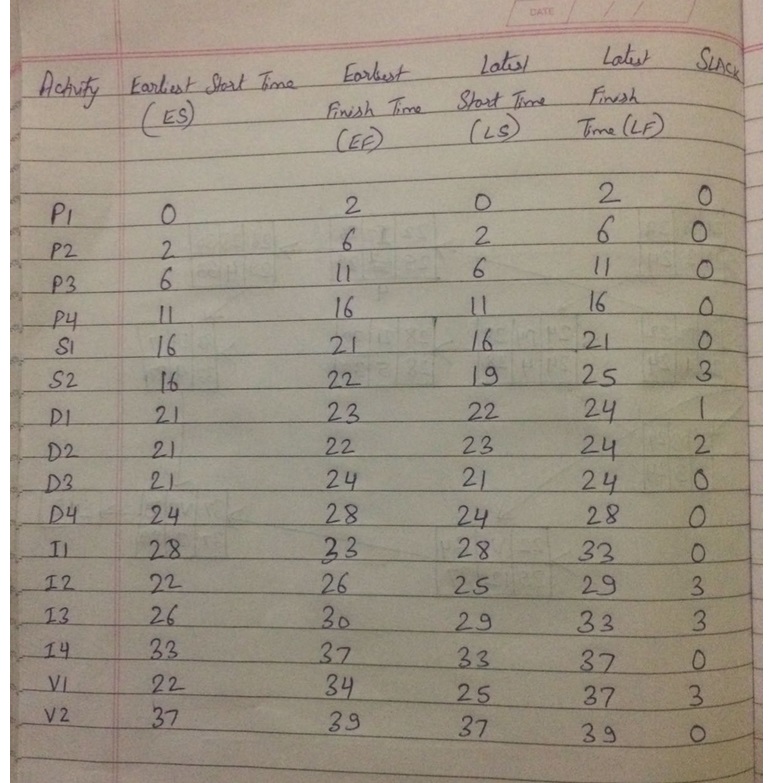 DATE
Activity Earliest Start Time Earliest Latest Latest SLACK
(ES) Finish Time Start Time Finish
(EF) (LS) Time (LF)
P1 0 2 0 2 0
P2 2 6 2 6 0
P3 6 11 6 11 0
P4 11 16 11 16 0
S1 16 21 16 21 0
S2 16 22 19 25 3
D1 21 23 22 24 1
D2 21 22 23 24 2
D3 21 24 21 24 0
D4 24 28 24 28 0
I1 28 33 28 33 0
I2 22 26 25 29 3
I3 26 30 29 33 3
I4 33 37 33 37 0
V1 22 34 25 37 3
V2 37 39 37 39 0